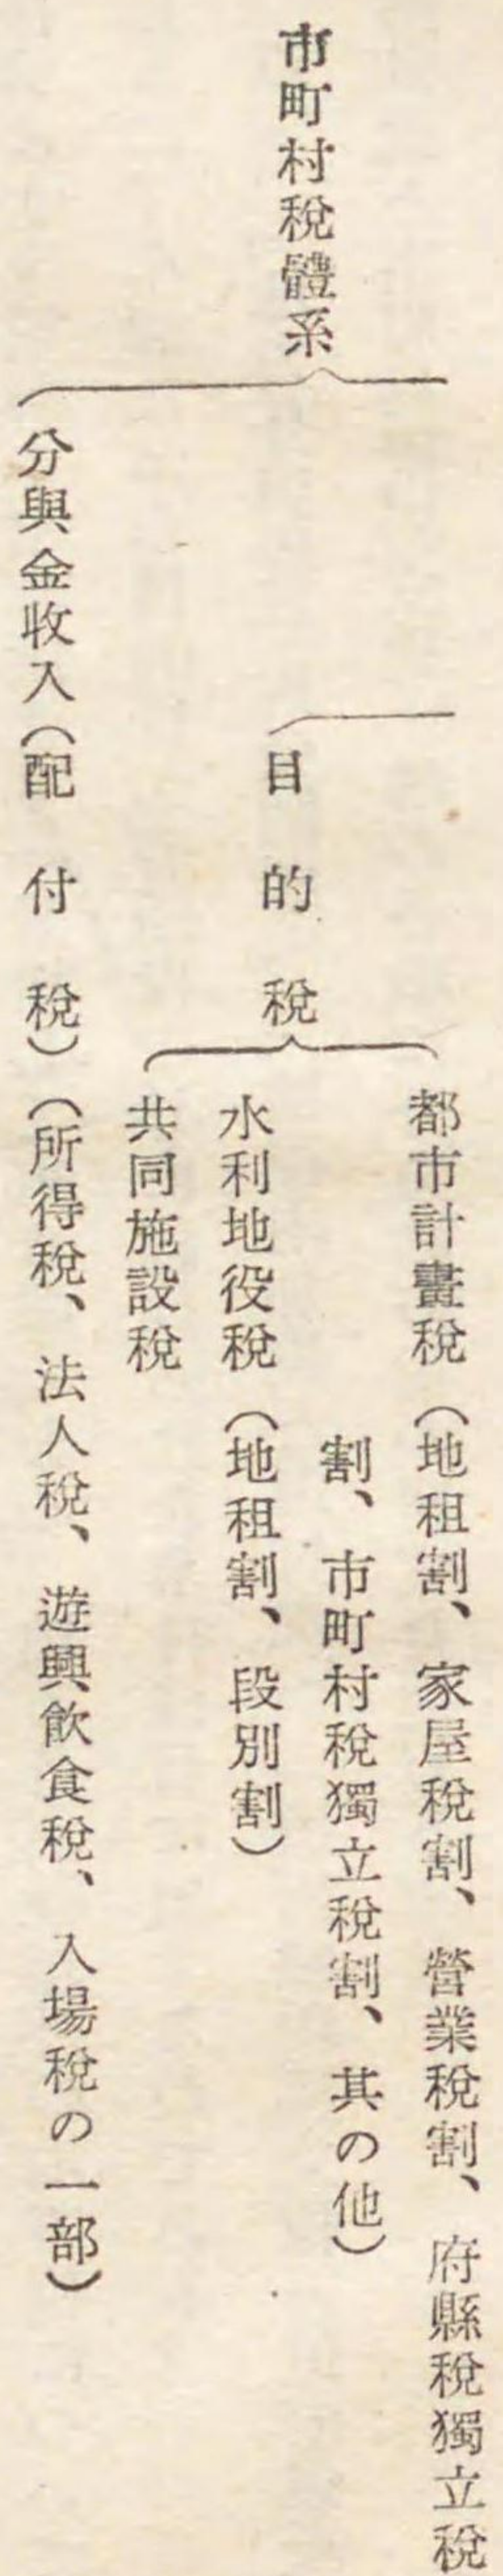 市町村稅體系
目的稅
都市計畫稅（地租割、家屋稅割、營業稅割、府縣稅獨立稅
割、市町村稅獨立稅割、其の他）
水利地役稅（地租割、段別割）
共同施設稅
分與金收入（配付稅）（所得稅、法人稅、遊興飲食稅、入場稅の一部）